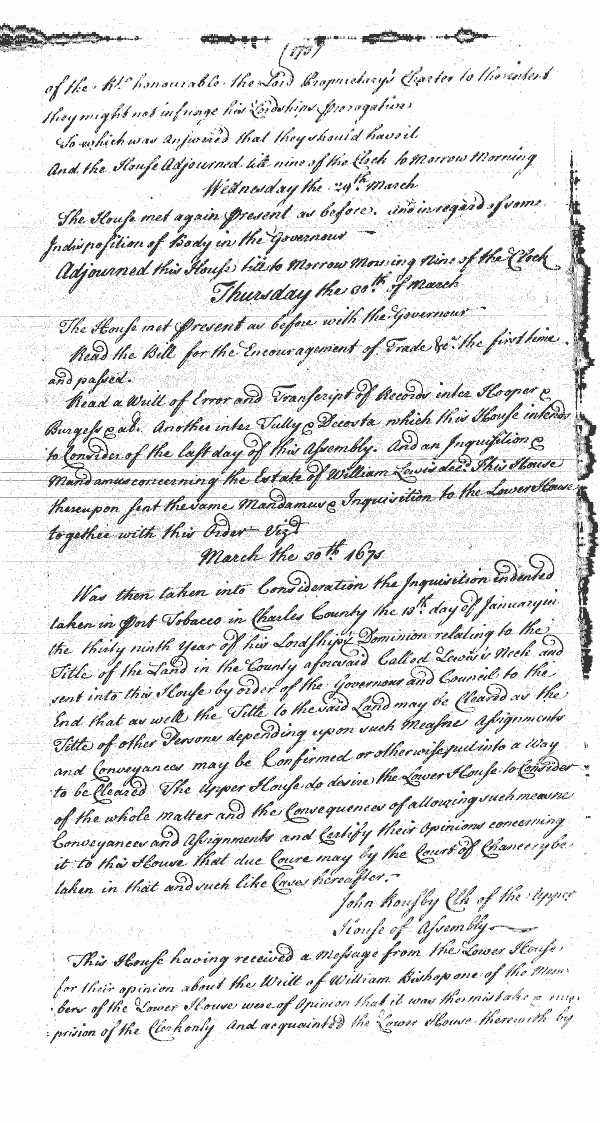 (173)
of the Rt. honourable the Lord Proprietary's Charter to the intent
they might not infringe his Lordships Prerogative
To which was answered that they should have it
And the House Adjourned till nine of the Clock to Morrow Morning
Wednesday the 29th March
The House met again Present as before. and in regard of some
Indisposition of Body in the Governour
Adjourned this House till to Morrow Morning Nine of the Clock
Thursday the 30th of March
The House met Present as before with the Governour
Read the Bill for the Encouragement of Trade &c. the first time
and passed.
Read a Writt of Error and Transcript of Records inter Hooper &
Burgess & al. Another inter Tully & Decosta which this House intends
to Consider of the last day of this Assembly. And an Inquisition &
Mandamus concerning the Estate of William Lewis decd. This House
thereupon sent the same Mandamus & Inquisition to the Lower House
together with this Order Vizt
March the 30th 1671
Was then taken into Consideration the Inquisition indented
taken in Port Tobacco in Charles County the 13th day of January in
the thirty ninth Year of his Lordships Dominion relating to the
Title of the Land in the County aforesaid Called Lewis's Neck and
sent into this House by order of the Governour and Council to the
End that as well the Title to the said Land may be Cleared as the
Title of other Persons depending upon such Measne Assignments
and Conveyances may be Confirmed or otherwise put into a Way
to be Cleared The Upper House do desire the Lower House to Consider
of the whole matter and the Consequences of allowing such measne
Conveyances and Assignments and Certify their Opinions concerning
it to this House that due Course may by the Court of Chancery be
taken in that and such like Cases hereafter.
John Rousby Clk of the Upper
House of Assembly
This House having received a Message from the Lower House
for their opinion about the Writt of William Bishop one of the Mem
bers of the Lower House were of Opinion that it was the mistake &
prision of the Clerk only And acquainted the Lower House therewith by